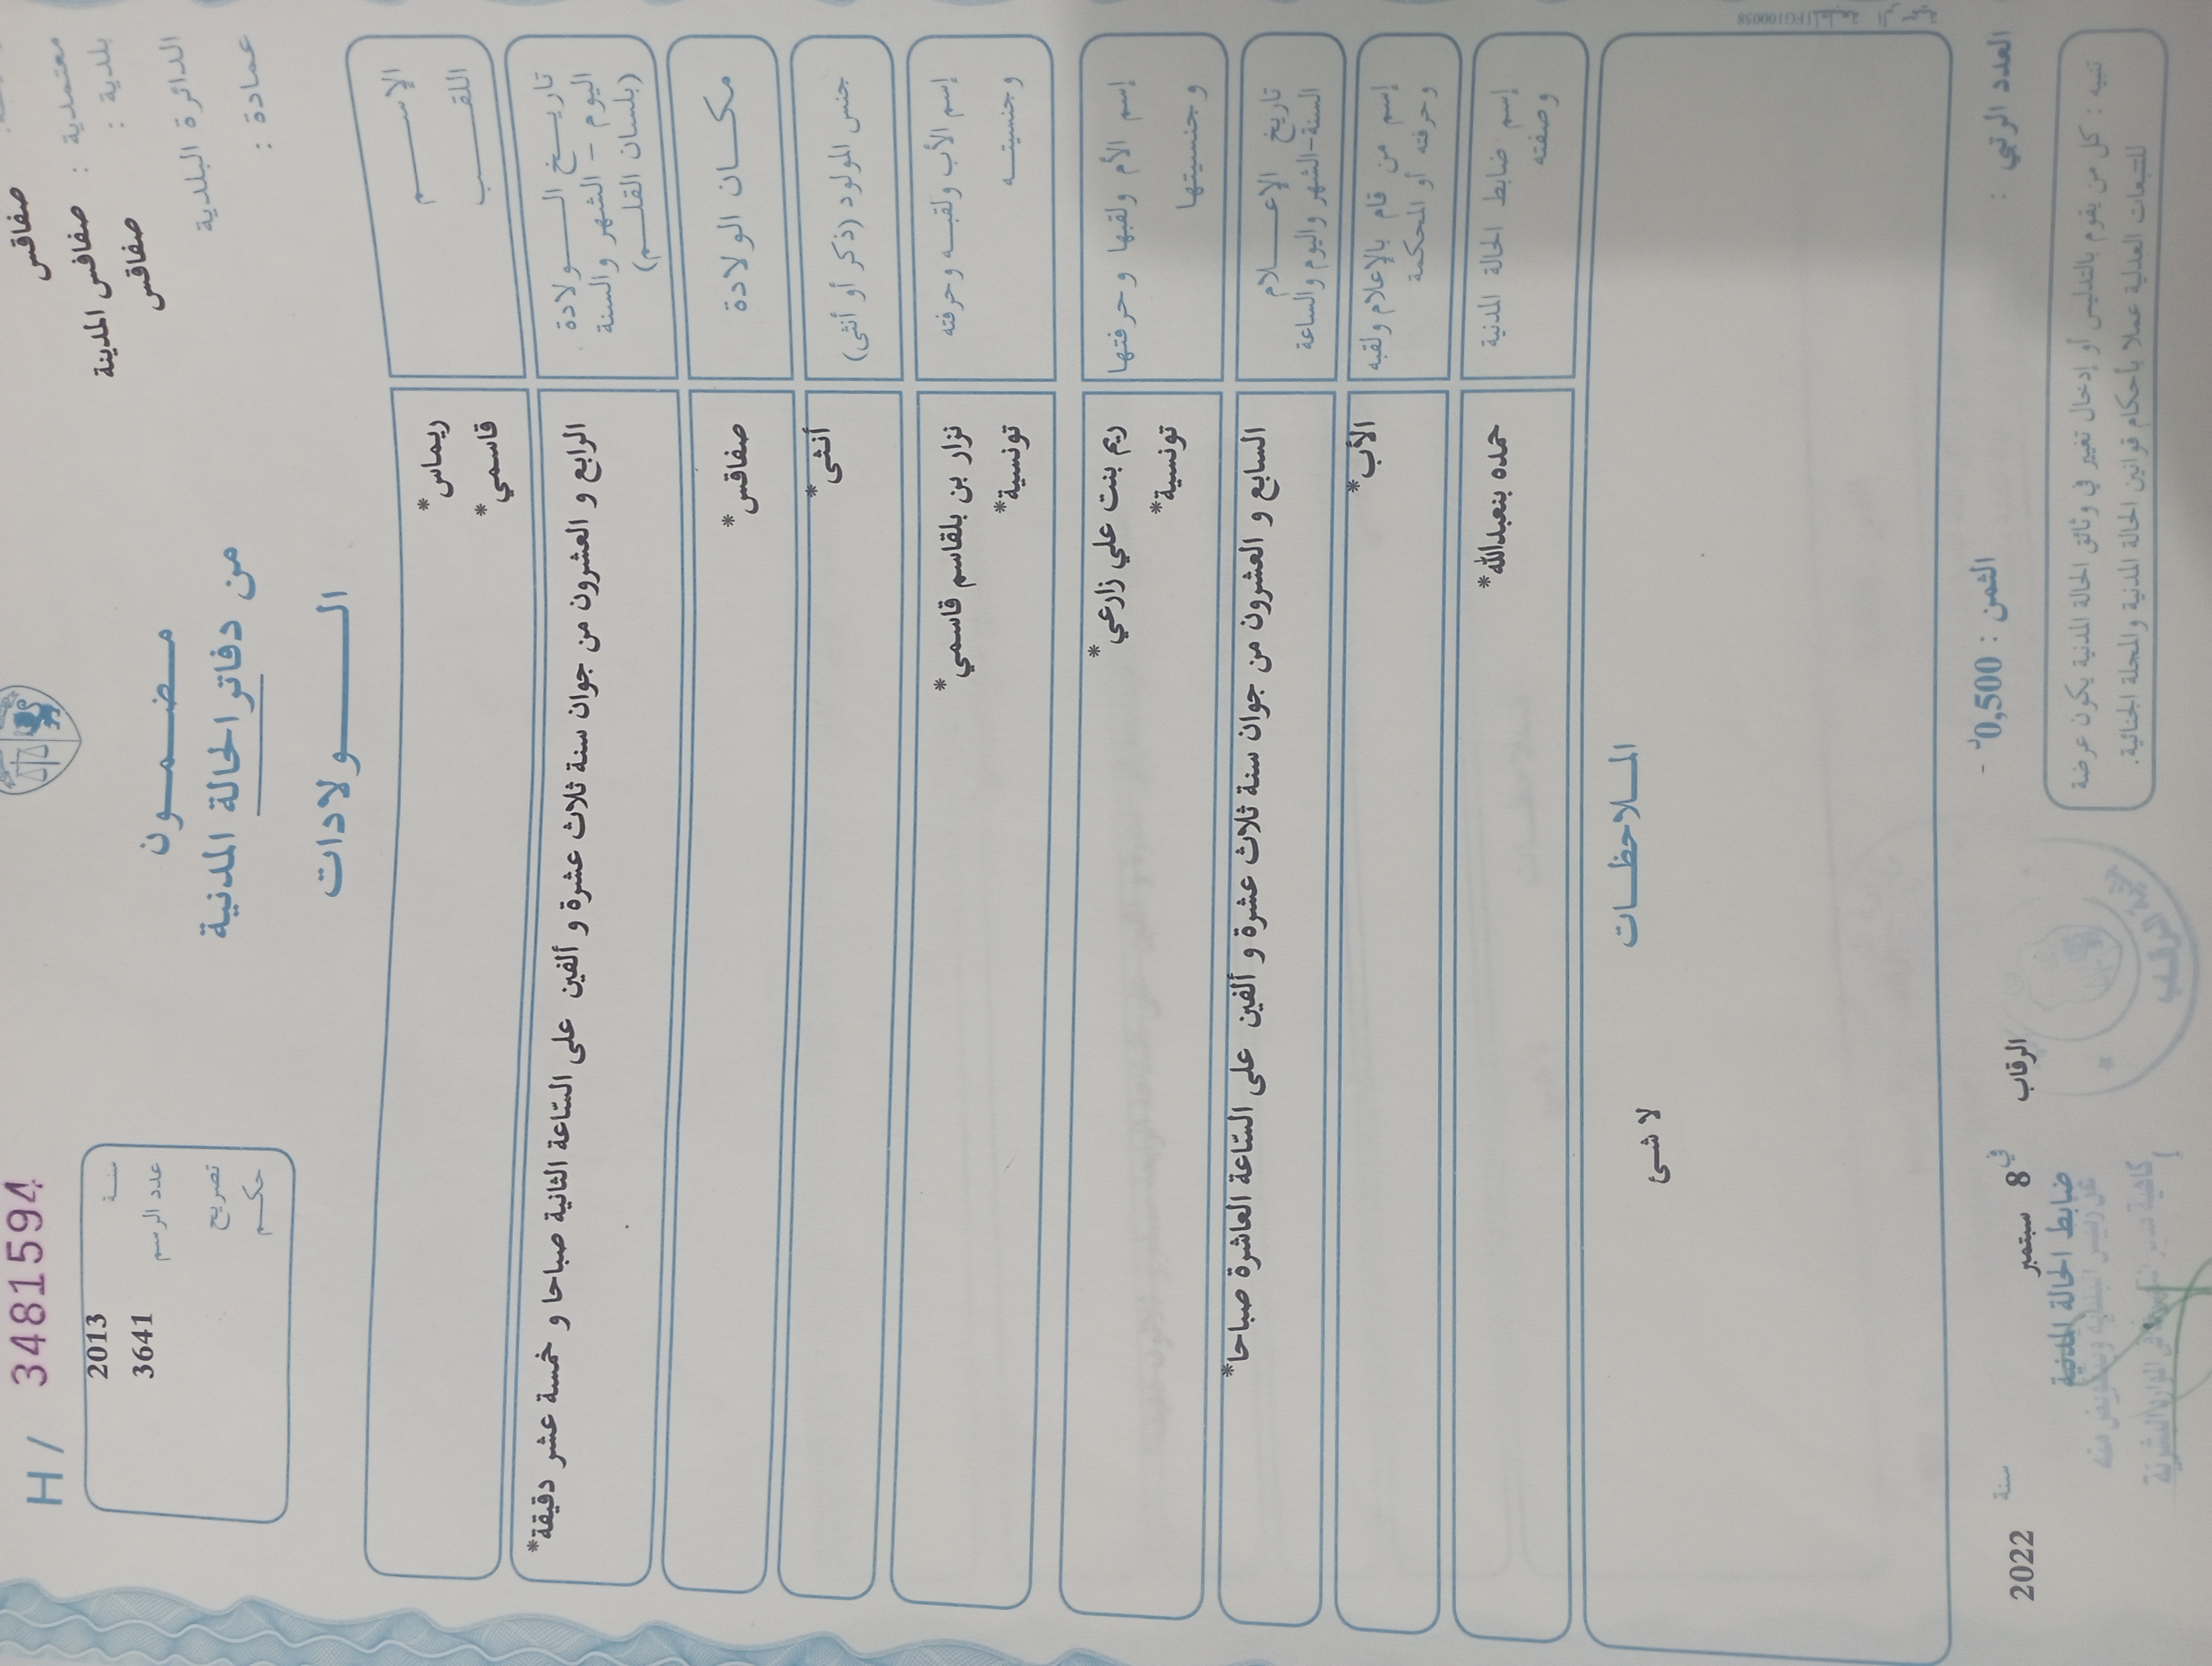 صفاقس
معتمدية : صفاقس المدينة
بلدية : صفاقس
الدائرة البلدية
عمادة :
H / 3481594
سنة 2013
عدد الرسم 3641
تصريح
حكم
مضمون
من دفاتر الحالة المدنية
الولادات
الإسم ريماس*
اللقب قاسمي*
تاريخ الولادة
اليوم - الشهر والسنة
(بلسان القلم)
الرابع و العشرون من جوان سنة ثلاث عشرة و ألفين على السّاعة الثانية صباحا و خمسة عشر دقيقة*
مكان الولادة صفاقس*
جنس المولود (ذكر أو أنثى) أنثى*
إسم الأب ولقبه وحرفته نزار بن بلقاسم قاسمي*
وجنسيته تونسية*
إسم الأم ولقبها وحرفتها ريم بنت علي زارعي*
وجنسيتها تونسية*
تاريخ الإعلام
السنة-الشهر واليوم والساعة
السابع و العشرون من جوان سنة ثلاث عشرة و ألفين على السّاعة العاشرة صباحا*
إسم من قام بالإعلام ولقبه
وحرفته أو المحكمة
الأب*
إسم ضابط الحالة المدنية
وصفته
حمده بنعبدالله*
الملاحظات
لا شئ
العدد الرتبي :
الثمن : 0,500د
الرقاب في 8 سبتمبر سنة 2022
ضابط الحالة المدنية
تنبيه : كل من يقوم بالتدليس أو إدخال تغيير في وثائق الحالة المدنية يكون عرضة
للتتبعات العدلية عملا بأحكام قوانين الحالة المدنية والمجلة الجنائية.